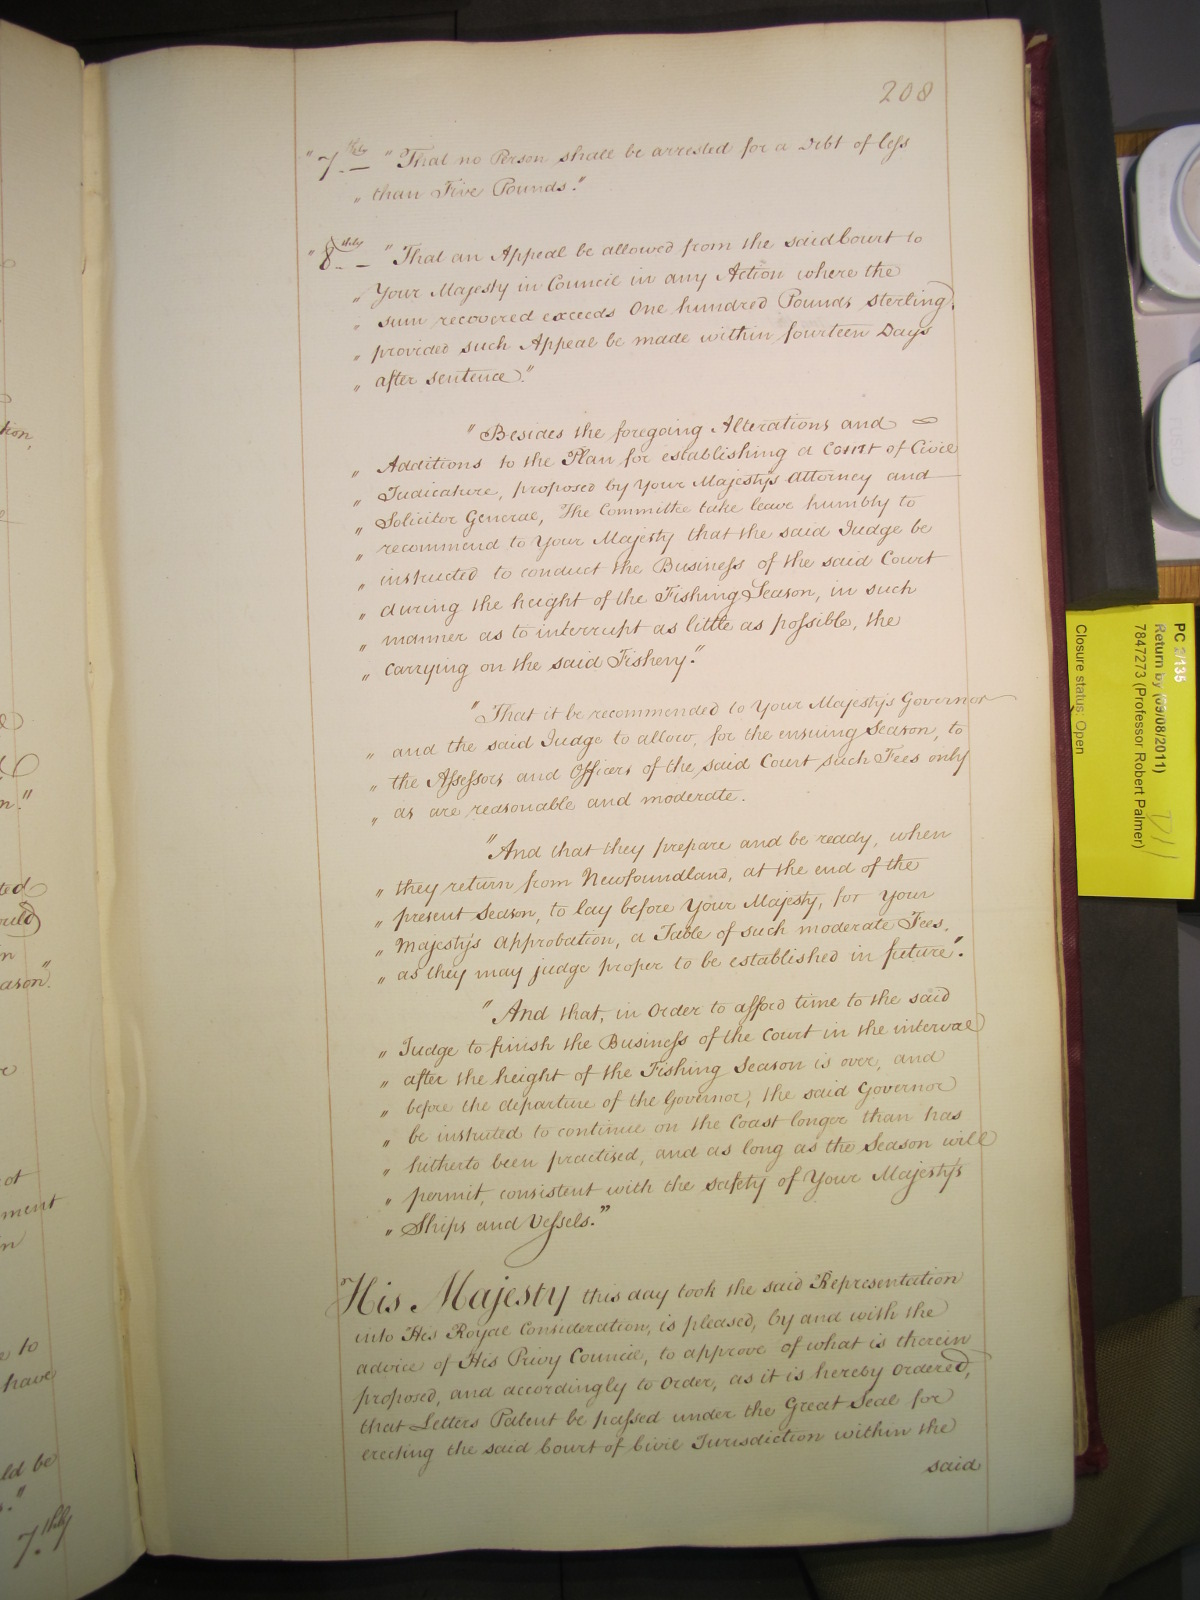 208
" 7.thly " That no Person shall be arrested for a Debt of less
" than Five Pounds."
" 8thly " That an Appeal be allowed from the said Court to
" Your Majesty in Council in any Action where the
" sum recovered exceeds One hundred Pounds sterling,
" provided such Appeal be made within fourteen Days
" after sentence."
" Besides the foregoing Alterations and
" Additions to the Plan for establishing a Court of Civil
" Judicature, proposed by Your Majesty's Attorney and
" Solicitor General, The Committee take leave humbly to
" recommend to Your Majesty that the said Judge be
" instructed to conduct the Business of the said Court
" during the height of the Fishing Season, in such
" manner as to interrupt as little as possible, the
" carrying on the said Fishery."
" That it be recommended to Your Majesty's Governor
" and the said Judge to allow, for the ensuing Season, to
" the Assessors and Officers of the said Court such Fees only
" as are reasonable and moderate.
" And that they prepare and be ready, when
" they return from Newfoundland, at the end of the
" present Season, to lay before Your Majesty, for Your
" Majesty's Approbation, a Table of such moderate Fees,
" as they may judge proper to be established in future."
" And that, in Order to afford time to the said
" Judge to finish the Business of the Court in the interval
" after the height of the Fishing Season is over, and
" before the departure of the Governor, the said Governor
" be instructed to continue on the Coast longer than has
" hitherto been practised, and as long as the Season will
" permit, consistent with the safety of Your Majesty's
" Ships and Vessels."
His Majesty this day took the said Representation
into His Royal Consideration, is pleased, by and with the
advice of His Privy Council, to approve of what is therein
proposed, and accordingly to Order, as it is hereby Ordered,
that Letters Patent be passed under the Great Seal for
erecting the said Court of Civil Jurisdiction within the
said
tion,
n."
ted
n
ason."
ot
ment
in
to
have
ld be
7.thly
PC 2/135
Return by (09/08/2011)
7847273 (Professor Robert Palmer)
Closure status: Open